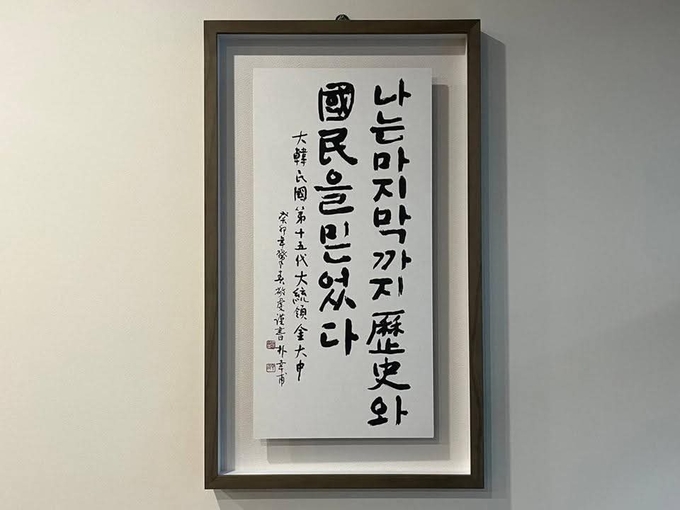 나는마지막까지歷史와
國民을믿었다
大韓民國第十五代大統領金大中
癸卯年 謹書 朴